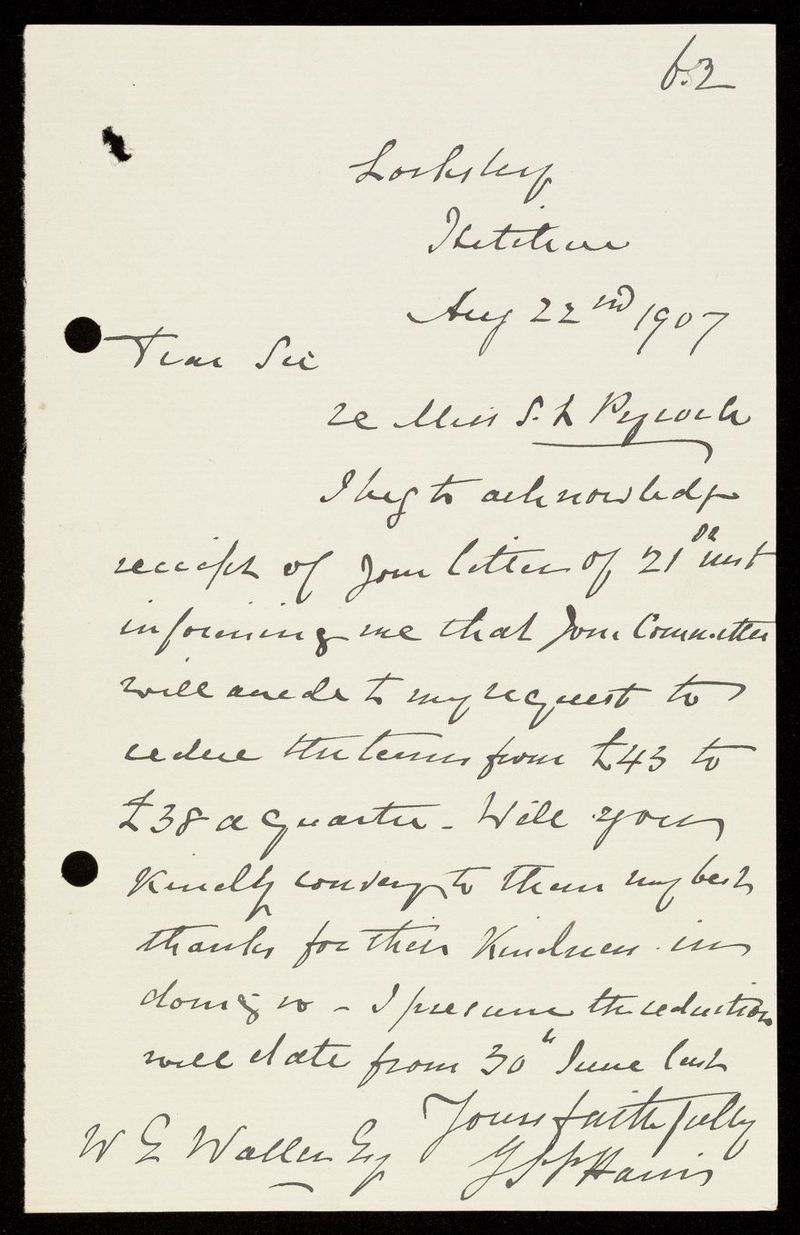 62
Locksley
Hitchin
Aug 22nd 1907
Dear Sir
re Miss S. L Pycock
I beg to acknowledge
receipt of your letter of 21st inst
informing me that your Committee
will accede to my request to
reduce the terms from £43 to
£38 a quarter - Will you
kindly convey to them my best
thanks for their Kindness in
doing so - I presume the reduction
will date from 30th June last
Yours faithfully
Harris
W E Waller Esq